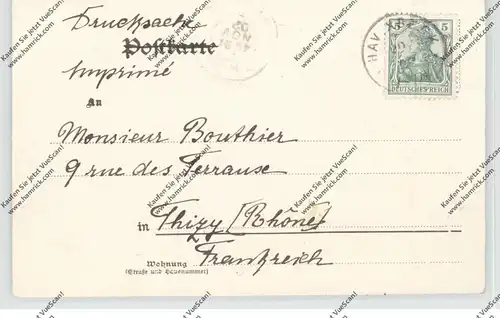 Drucksache
Postkarte
Imprimé
An
Monsieur Bouthier
9 rue des Terrause
in Thizy (Rhône)
Frankreich
Wohnung
(Straße und Hausnummer)
5
DEUTSCHES REICH
Kaufen Sie jetzt VueScan!
www.hamrick.com